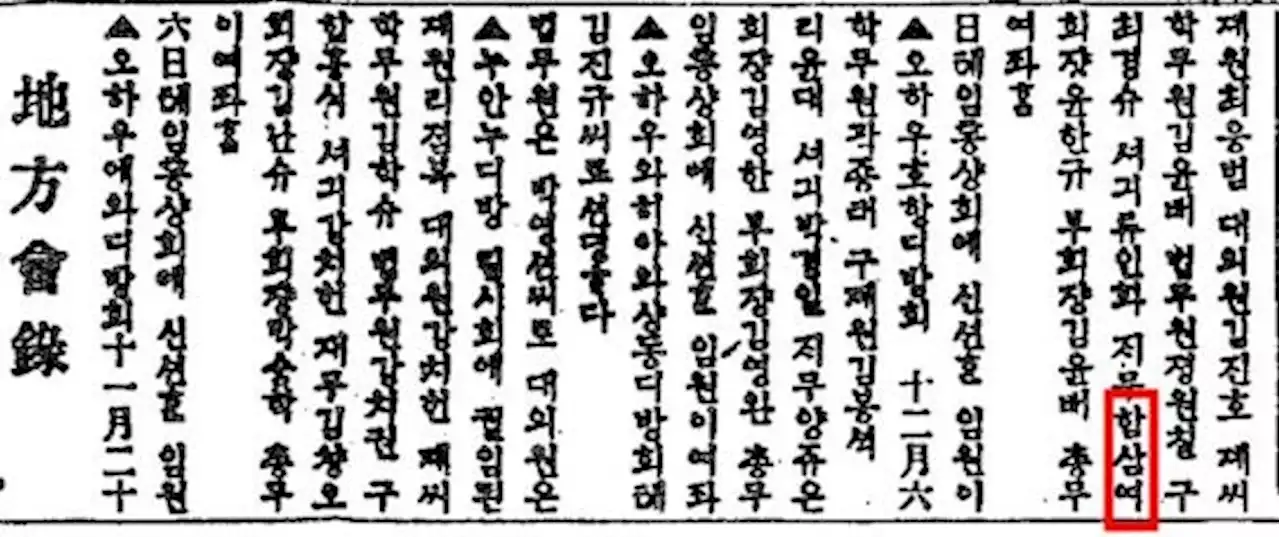 地方會錄
▲오하우에와디방회十一月二十
六日해임통상회에 신션흔 임원
이여좌흠
회장김난슈 부회장박승학 총무
함홍식 셔긔강치헌 재무김창오
학무원김학슈 법무원강치권 구
재원리전복 대의원강치헌 제씨
▲누안누디방 림시회에 궐임된
법무원은 박영션씨로 대의원은
김진규씨로션뎡하다
▲오하우와히아와상동디방회해
임통상회에 신션흔 임원이여좌
회장김영한 부회장김영완 총무
리윤대 셔긔박경일 지무양쥬은
학무원곽종태 구재원김봉셕
▲오하우호항디방회 十二月六
日해임통상회에 신션흔 임원이
여좌흠
회장윤한규 부회장김윤배 총무
최경슈 셔긔류인화 지무함삼여
학무원김윤배 법무원정원칠 구
재원최응범 대의원김진호 제씨